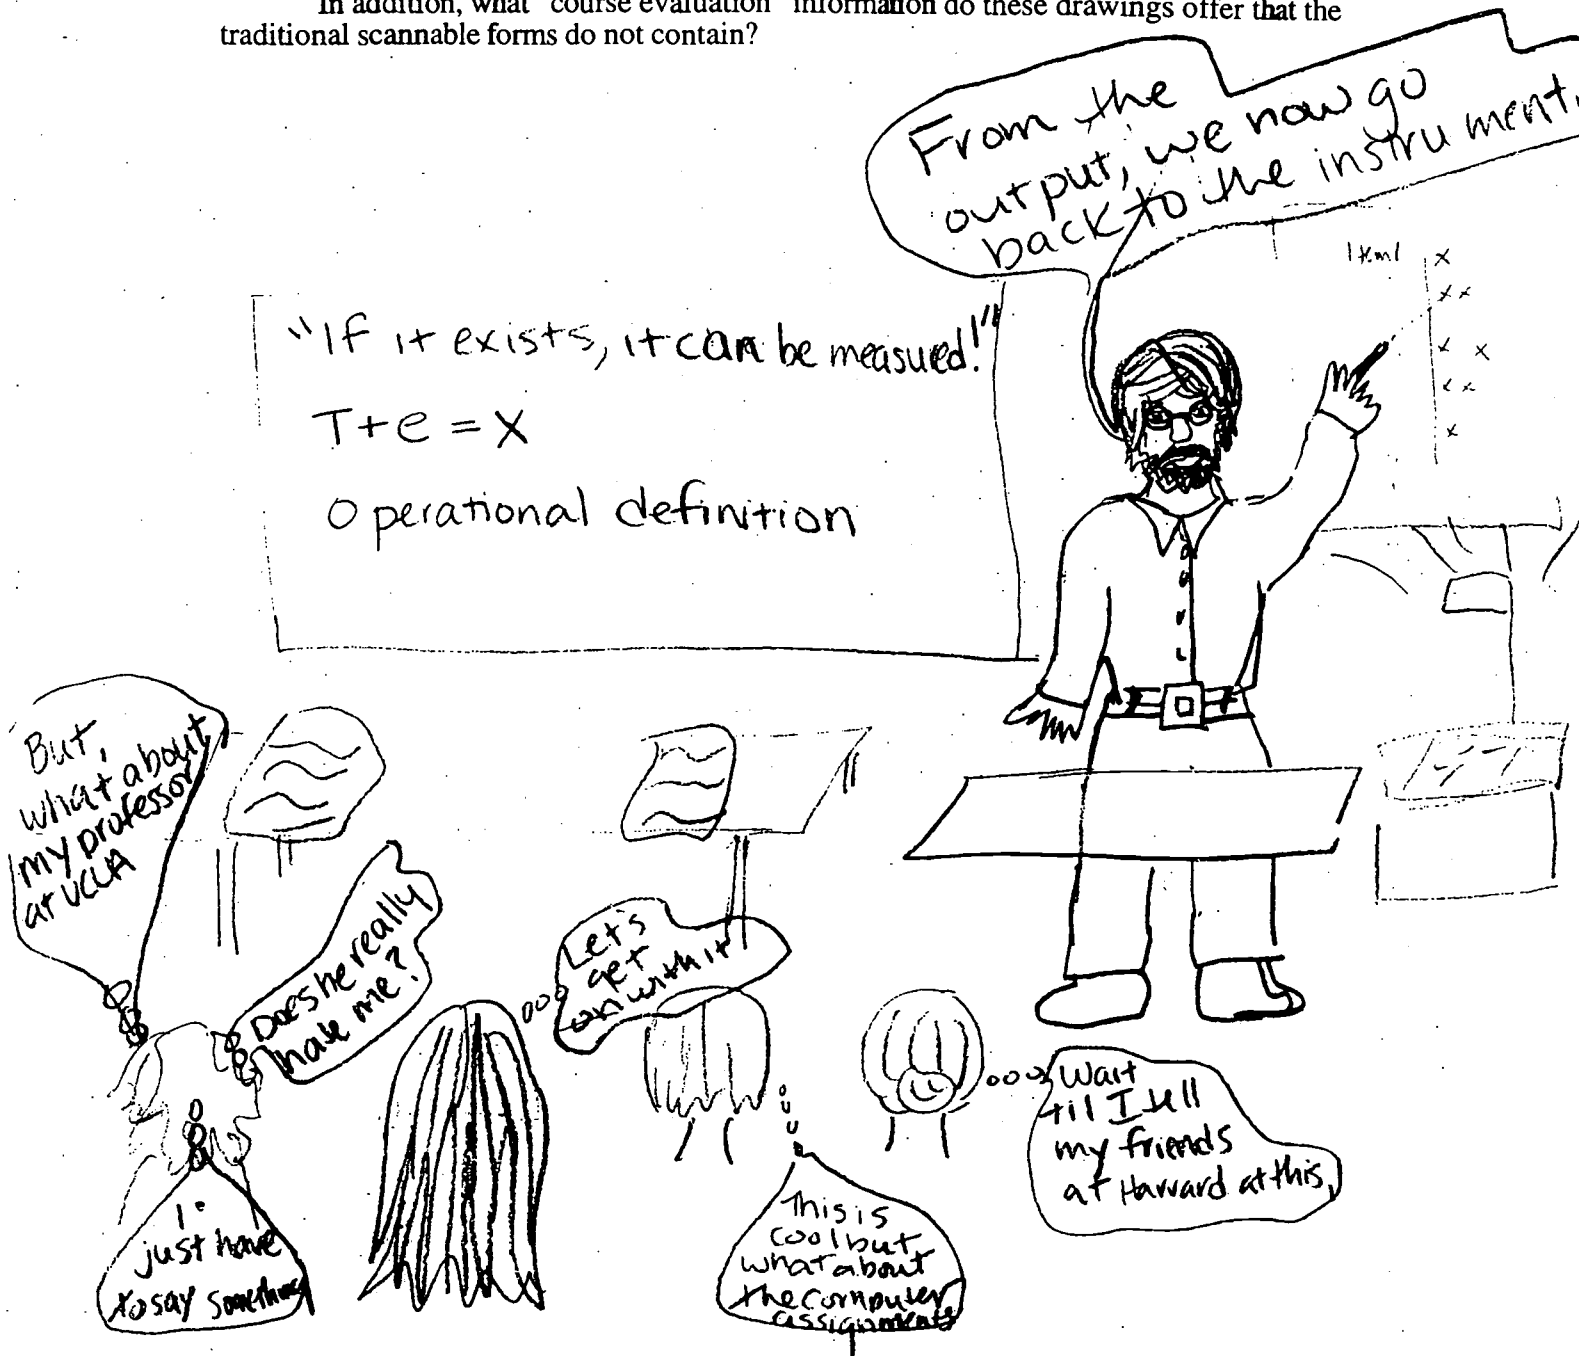 In addition, what "course evaluation" information do these drawings offer that the
traditional scannable forms do not contain?
From the
output, we now go
back to the instrument.
Item 1
"If it exists, it can be measured!"
T+e = X
Operational definition
But,
what about
my professor
at UCLA
Does he really
hate me?
Let's
get
on with it
I
just have
to say something
This is
cool but
what about
the computer
assignments
Wait
til I tell
my friends
at Harvard at this,